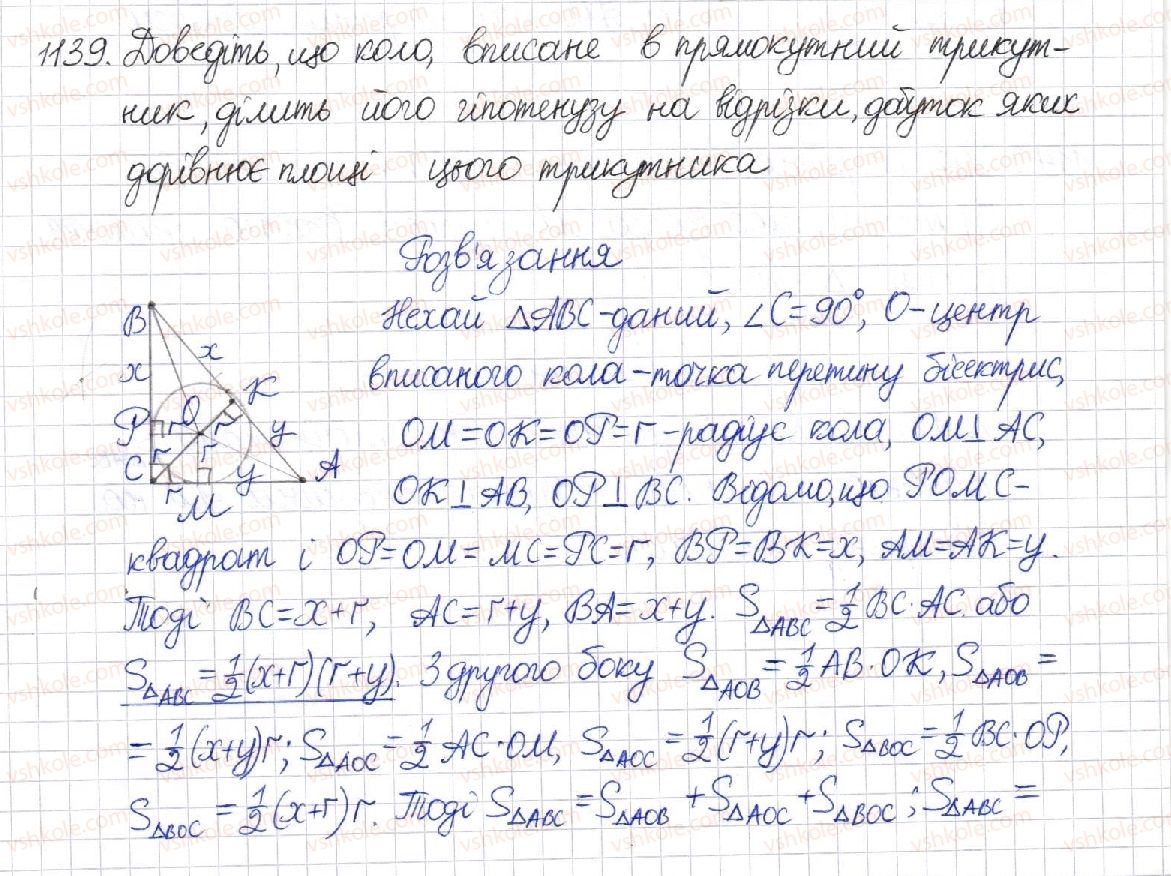 1139. Доведіть, що коло, вписане в прямокутний трикут-
ник, ділить його гіпотенузу на відрізки, добуток яких
дорівнює площі цього трикутника
Розв'язання
B
x
x
K
P
O
r
r
y
C
r
r
y
A
r
M
Нехай △ABC-даний, ∠C=90°, O-центр
вписаного кола-точка перетину бісектрис,
OM=OK=OP=r-радіус кола, OM⊥AC,
OK⊥AB, OP⊥BC. Відомо, що POMC-
квадрат і OP=OM=MC=PC=r, BP=BK=x, AM=AK=y.
Тоді BC=x+r, AC=r+y, BA=x+y. S△ABC=1/2 BC·AC. або
S△ABC=1/2(x+r)(r+y). З другого боку S△AOB=1/2 AB·OK, S△AOB=
=1/2(x+y)r; S△AOC=1/2 AC·OM, S△AOC=1/2(r+y)r; S△BOC=1/2 BC·OP,
S△BOC=1/2(x+r)r. Тоді S△ABC=S△AOB+S△AOC+S△BOC; S△ABC=
vshkole.com